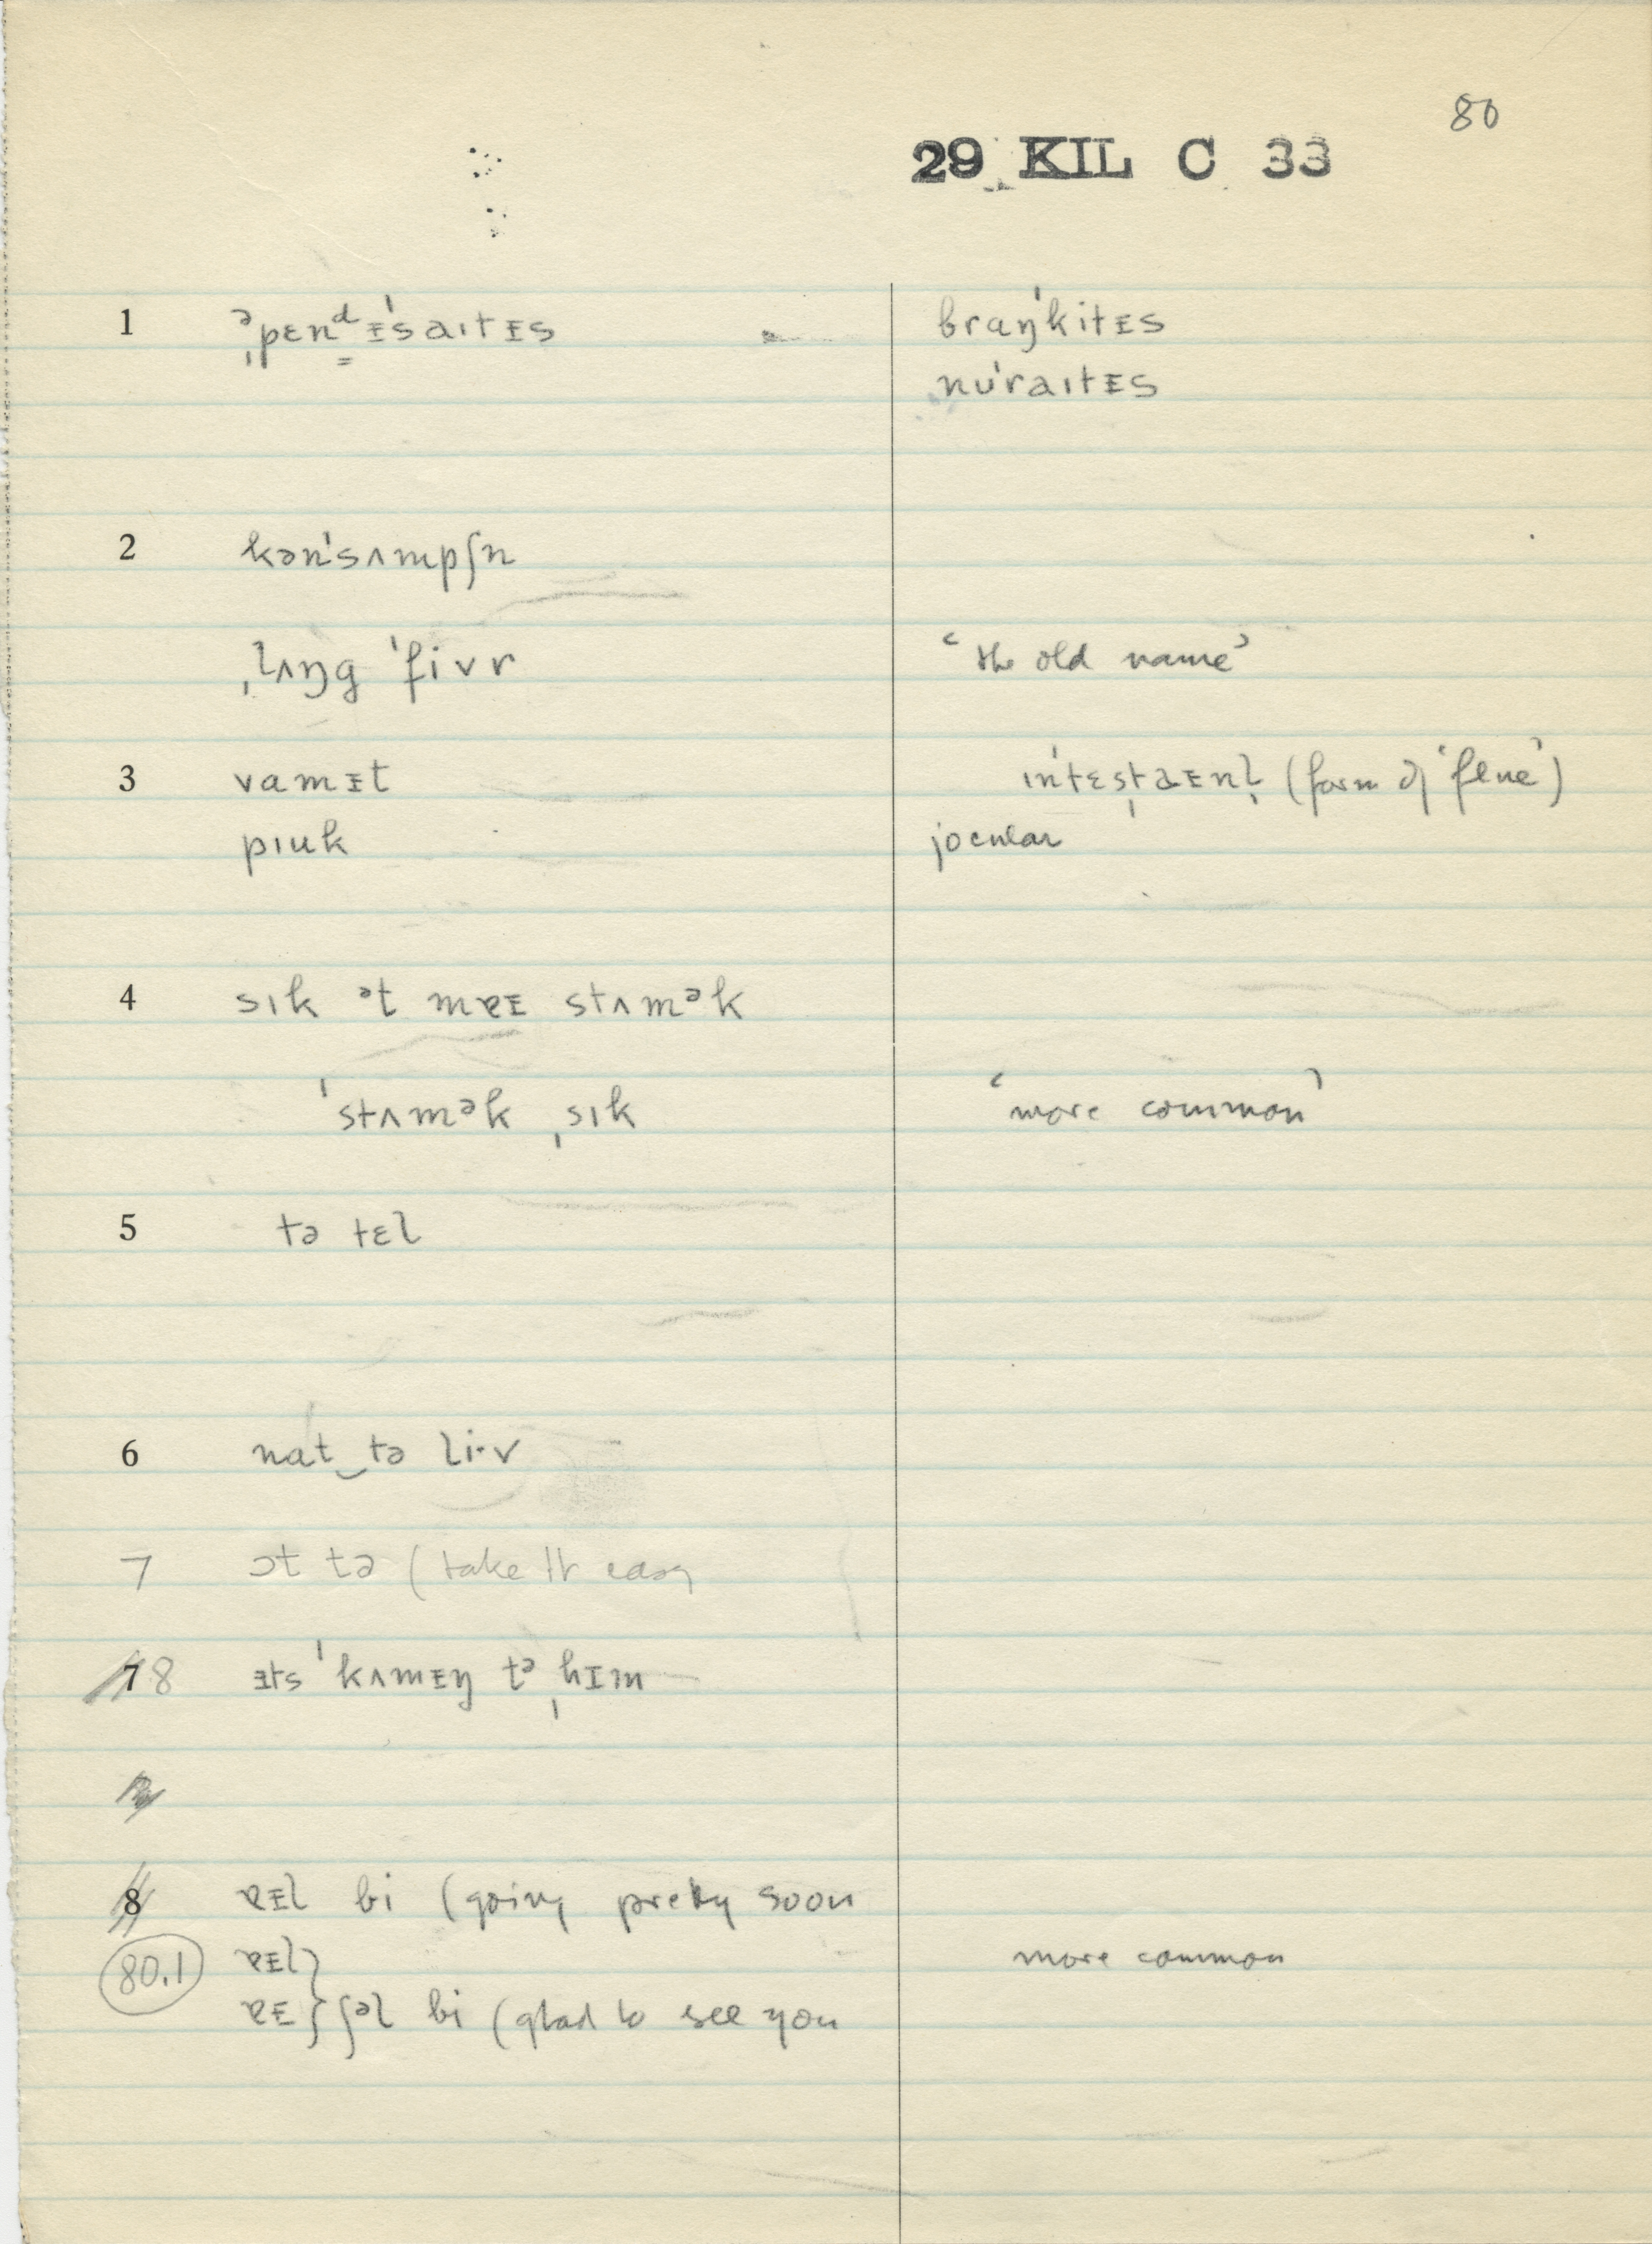 80
29 KIL C 33
1 əˌpɛnᵈᵻˈsaɪtᵻs braŋˈkitᵻs
nʊˈraɪtᵻs
2 kənˈsʌmpʃn
ˌlʌŋg ˈfivr ‘the old name’
3 vamᵻt ɪnˈtɛsˌtaᵻnl̩ (form of ‘flue’)
pɪuk jocular
4 sɪk ᵊt mɐᵻ stʌmᵊk
ˈstʌmᵊk ˌsɪk ‘more common’
5 tə tɛl
6 nat‿tə li·v
7 ɔt tə (take it easy
7 8 ᵻts ˈkʌmᵻŋ tᵊ ˌhɪm
8 ɐᵻl bi (going pretty soon
80.1 ɐᵻl} more common
ɐᵻ} ʃᵊl bi (glad to see you